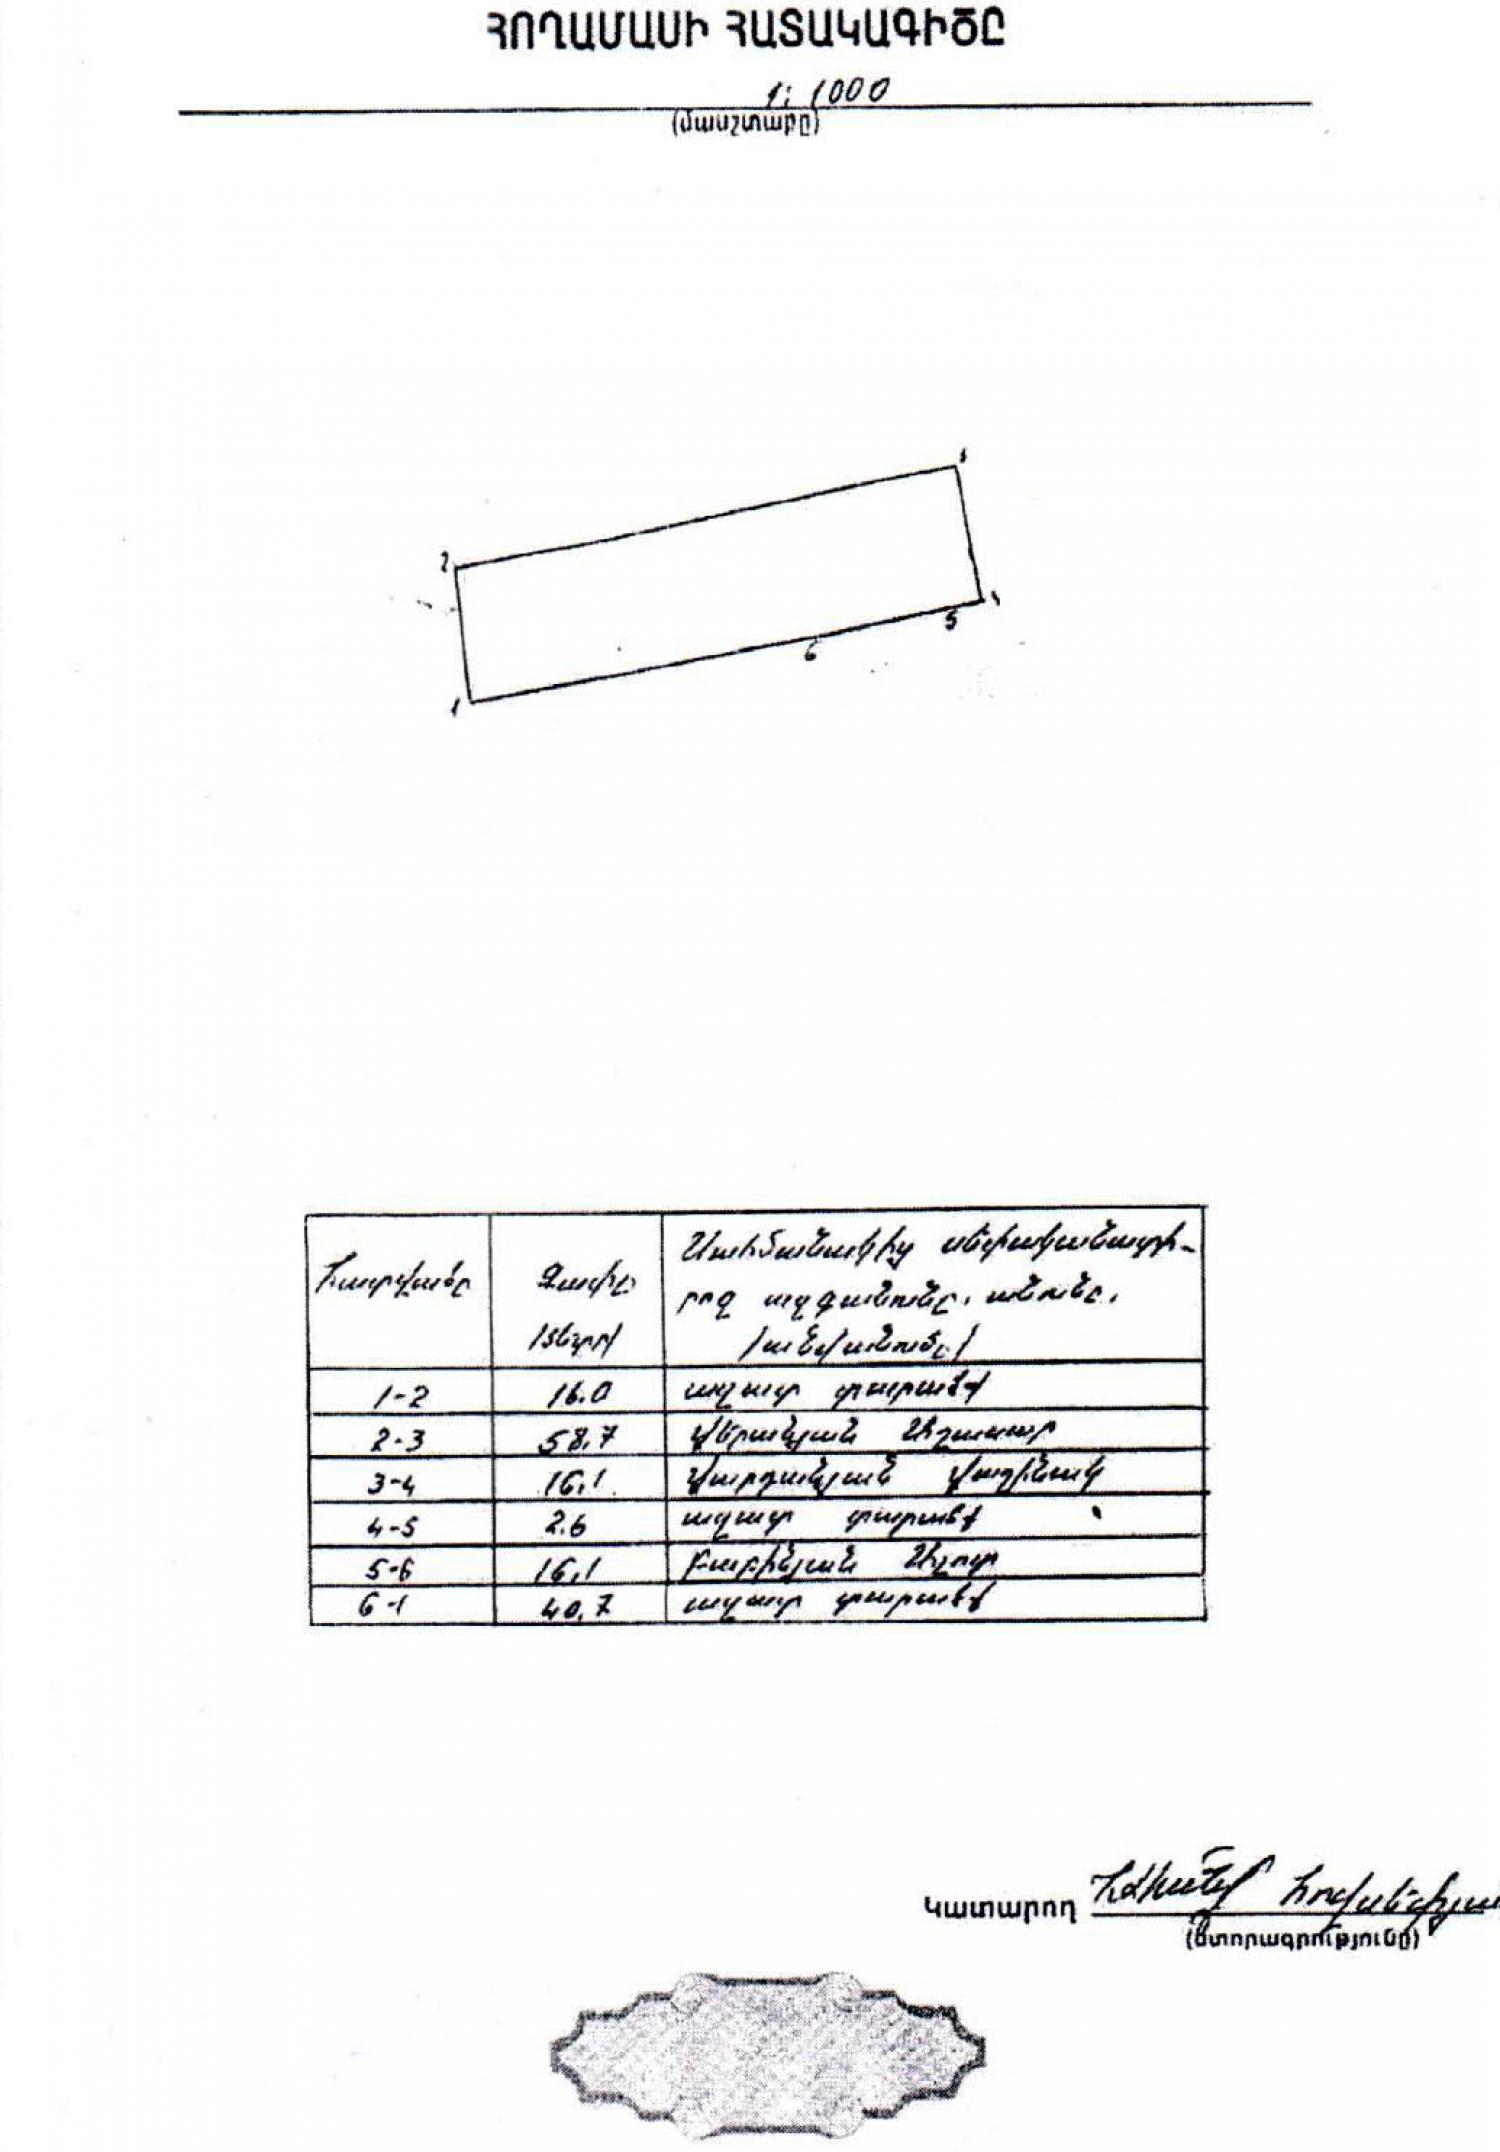 ՀՈՂԱՄԱՍԻ ՀԱՏԱԿԱԳԻԾԸ
1:1000
(մասշտաբը)
3
2
4
5
6
1
Հատվածը Չափը Սահմանակից սեփականատի-
րոջ ազգանունը, անունը,
/մետր/ /անվանումը/
1-2 16.0 ազատ տարածք
2-3 58,7
3-4 16,1 Վարդանյան Վաղինակ
4-5 2.6 ազատ տարածք
5-6 16,1 Բաբինյան Աշոտ
6-1 40,7 ազատ տարածք
Կատարող
(ստորագրությունը)